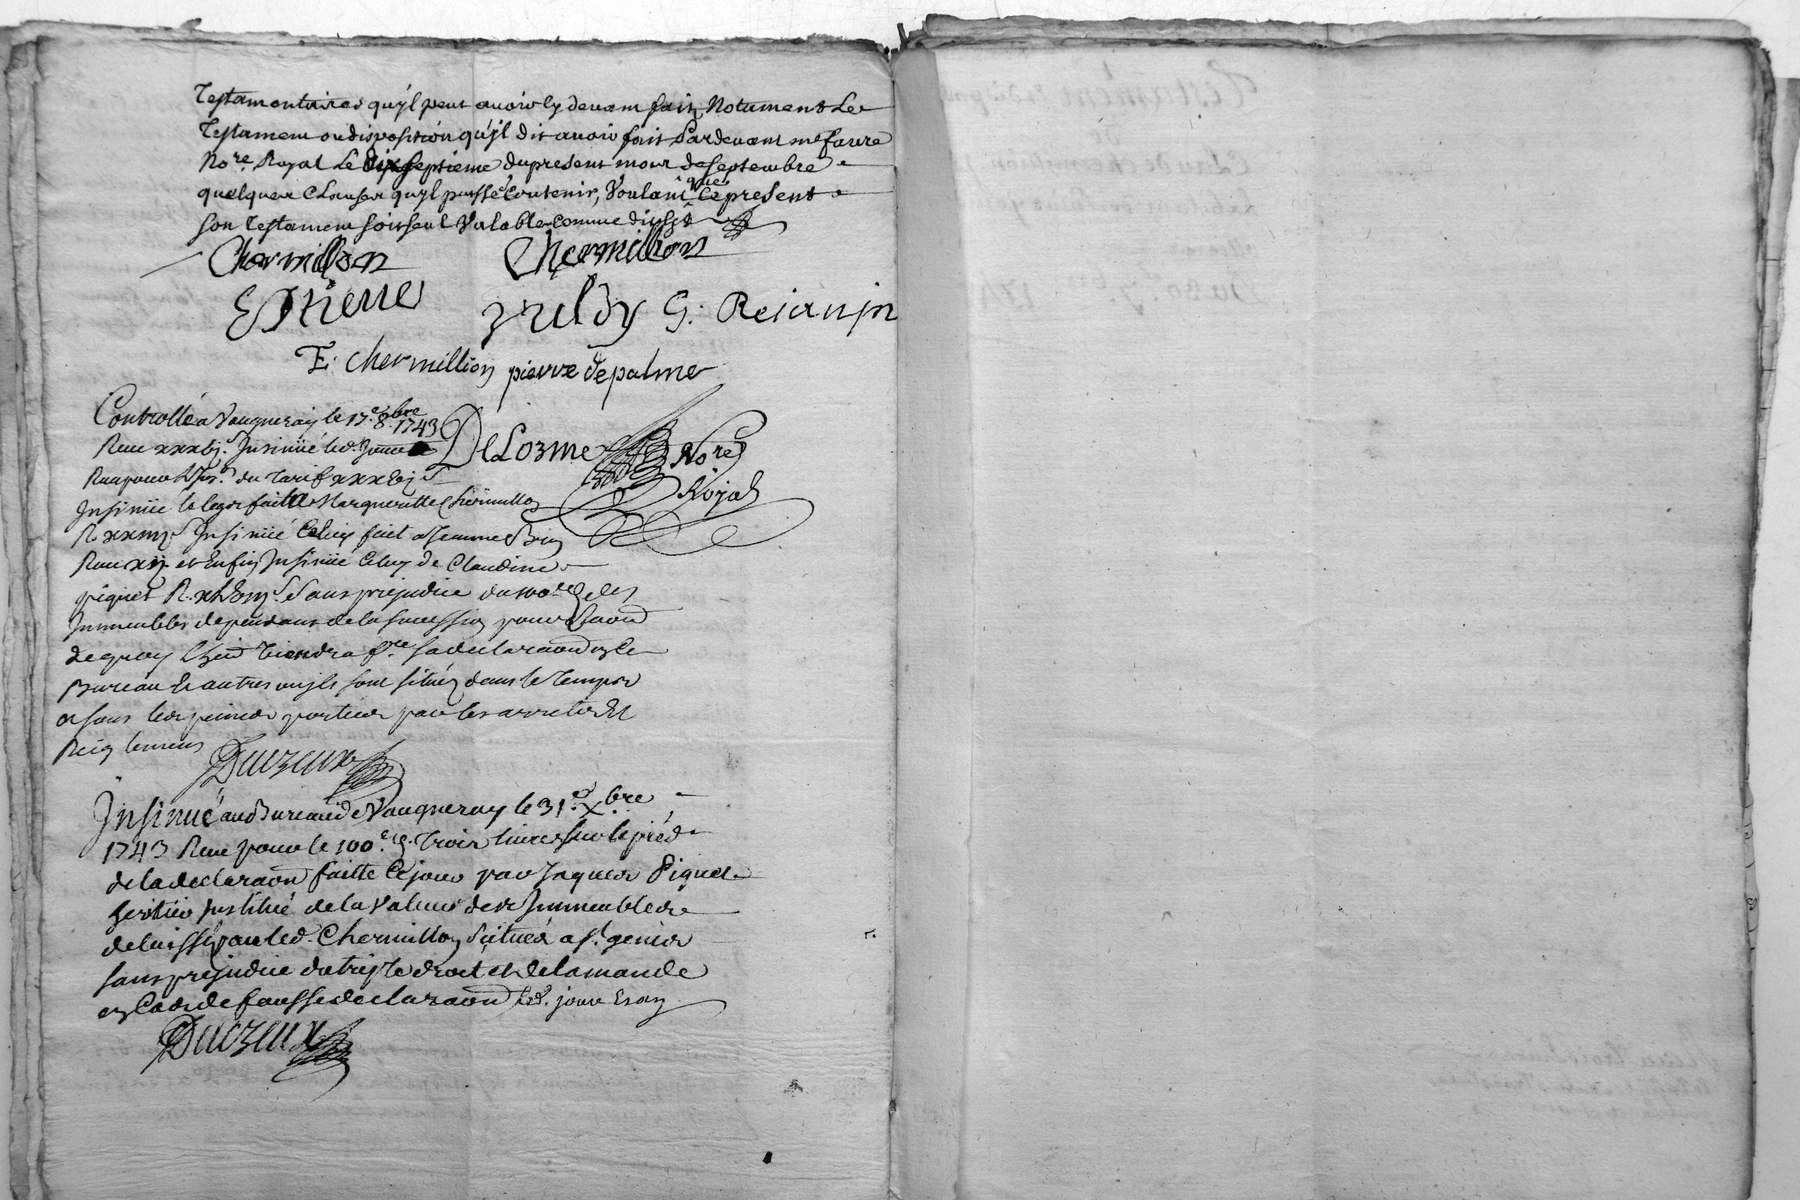 Testamentaires qu'jl peut avoir cy devant fait, Notament Le
Testament ou disposition qu'jl dit avoir fait Pardevant me faure
Nore. Royal Le dixseptieme du present mois de septembre
quelques Clauses qu'jl puisse Contenir, Voulant que Ce present
son Testament soit seul Valable comme dit est
Chermillon Chermillon
EThieue G. Rejanjn
E. chermillion pierre depalme
Controllé a Vaugneray le 17e. 8bre 1743
Insinué led. jour
DeLorme Nore
Royal
du tarif
Insinué le legs fait a Margueritte Chermillon
Insinué Celuy fait a Jeanne
et Enfin Insinué Celuy de Claudine
piquet R. sans prejudice du 100e. des
Immeubles dependans de la succession pour
de quoy tiendra fre. sa declaraōn en Ce
Bureau & autres ou jls sont situéz dans le Temps
& sous les peines portées par les arrets Et
Reiglemens
Duczeux
Insinué au Bureau de Vaugneray le 31e. Xbre
1743 Reçu pour le 100e. d. Trois livres sur le pied
de la declaraōn faitte Ce jour par Jaques Piquet
heritier Institué de la Valeur des Immeubles
delaissés par led. Chermillon Situés a st. genis
sans prejudice du triple droit et de lamande
en Cas de fausse declaraōn led. jour & an
Duczeux